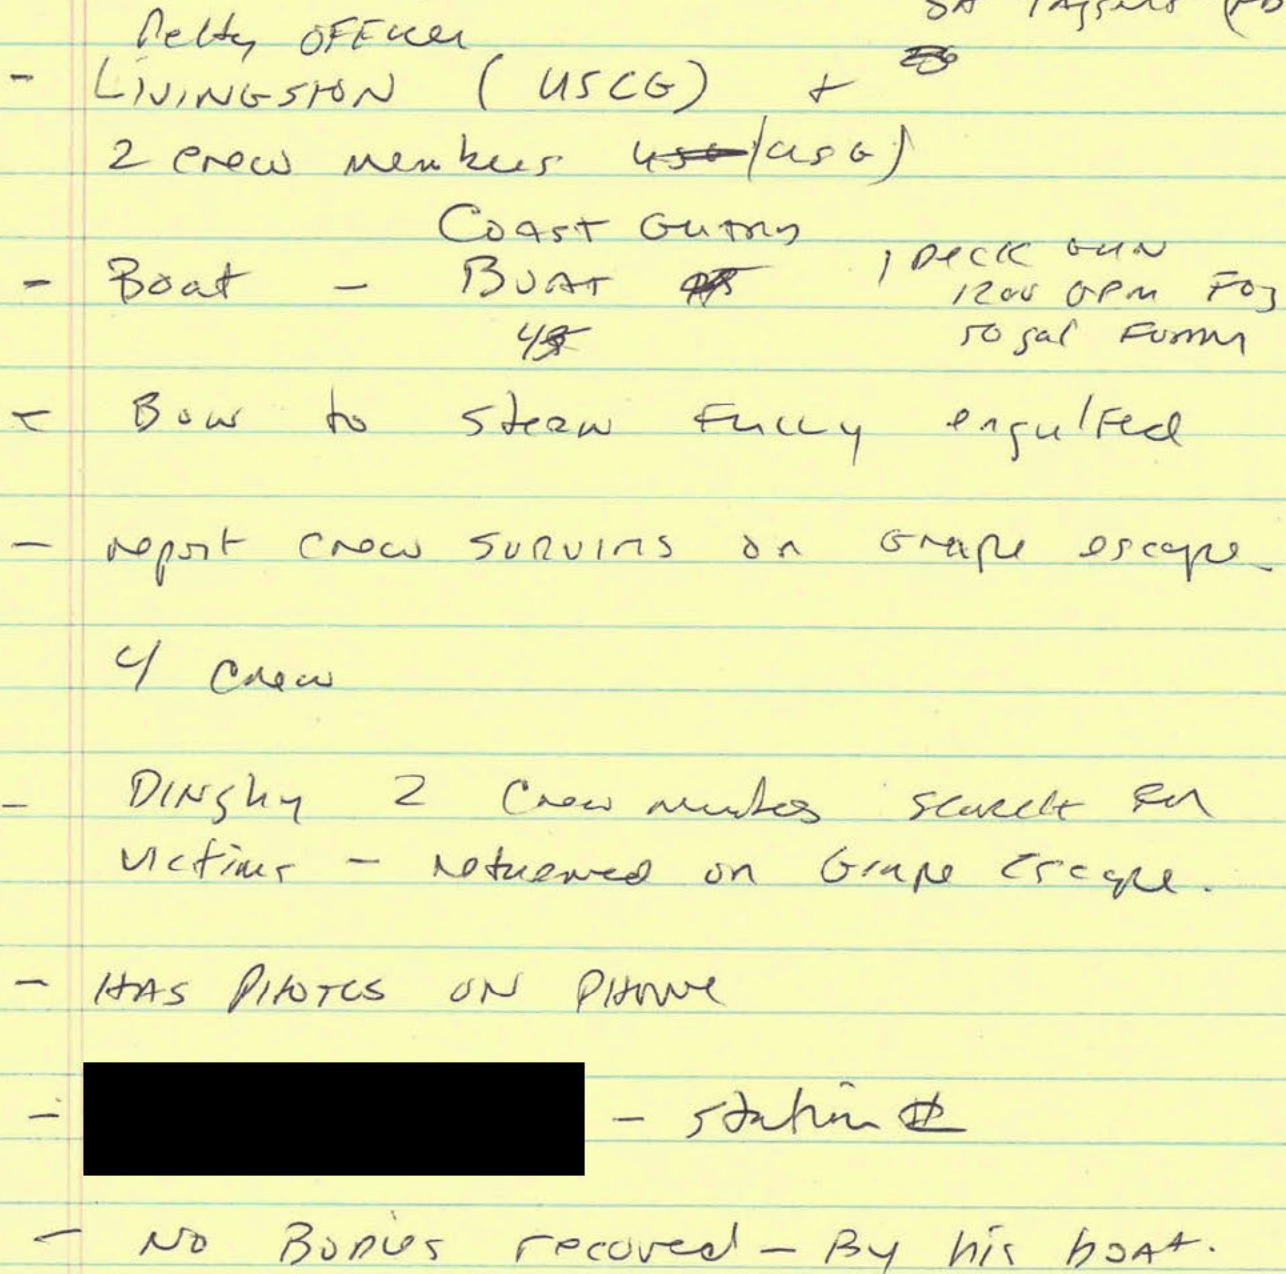 Petty OFFicer
- LIVINGSTON (USCG) +
2 crew members (USG)
Coast Guard
- Boat - BOAT 1 Deck GUN
1200 GPM Fog
45 50 gal Foam
- Bow to stern Fully engulfed
- report crew survivrs on Grape escape
4 Crew
- DINghy 2 Crew members search For
victims - returned on Grape Escape.
- HAS PHOTOS ON PHONE
- - station #
- NO BODIES recoved - By his boat.